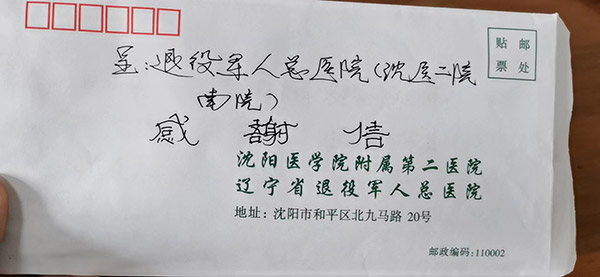 贴邮
票处
呈:退役军人总医院(沈医二院
南院)
感 謝 信
沈阳医学院附属第二医院
辽宁省退役军人总医院
地址:沈阳市和平区北九马路 20号
邮政编码:110002